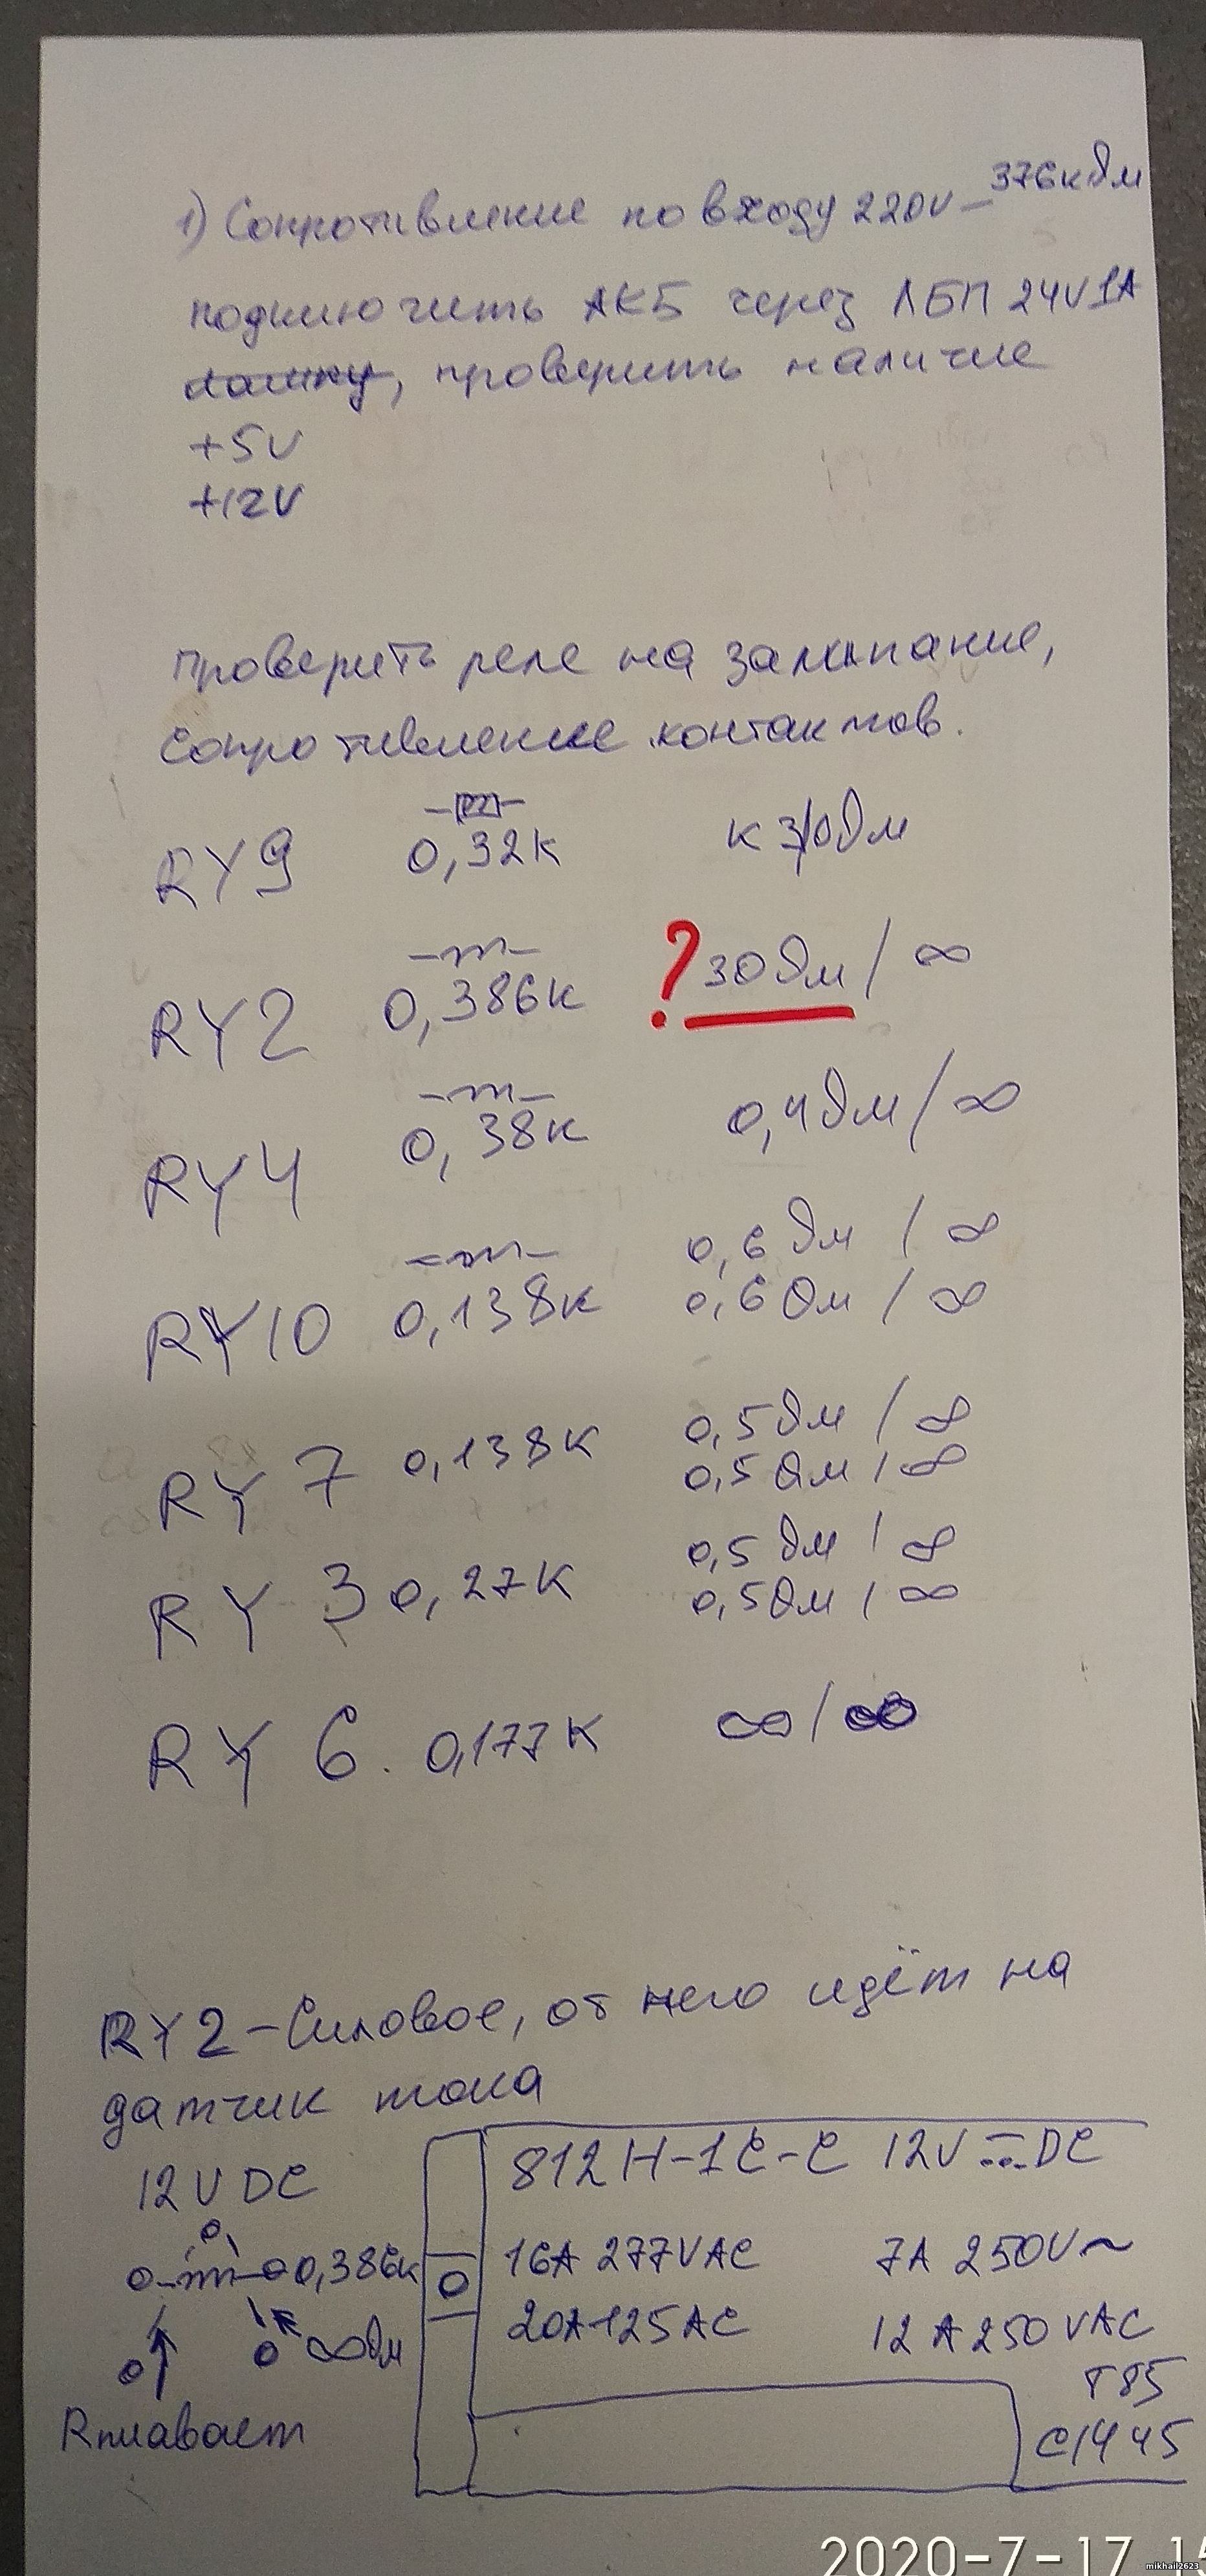 1) Сопротивление по входу 220V – 376кОм
подключить АКБ через ЛБП 24V 1A
, проверить наличие
+5V
+12V
Проверить реле на залипание,
Сопротивление контактов.
RY9 0,32к к з/0 Ом
RY2 0,386к ? 30 Ом / ∞
RY4 0,38к 0,4 Ом / ∞
RY10 0,138к 0,6 Ом / ∞
0,6 Ом / ∞
RY7 0,138к 0,5 Ом / ∞
0,5 Ом / ∞
RY3 0,27к 0,5 Ом / ∞
0,5 Ом / ∞
RY6. 0,177к ∞ / ∞
RY2 – Силовое, от него идёт на
датчик тока
12V DC
0,386к
∞ Ом
R плавает
812H-1C-C 12V DC
16A 277VAC 7A 250V~
20A 125AC 12A 250VAC
T85
C1445
2020-7-17 15
mikhail2623